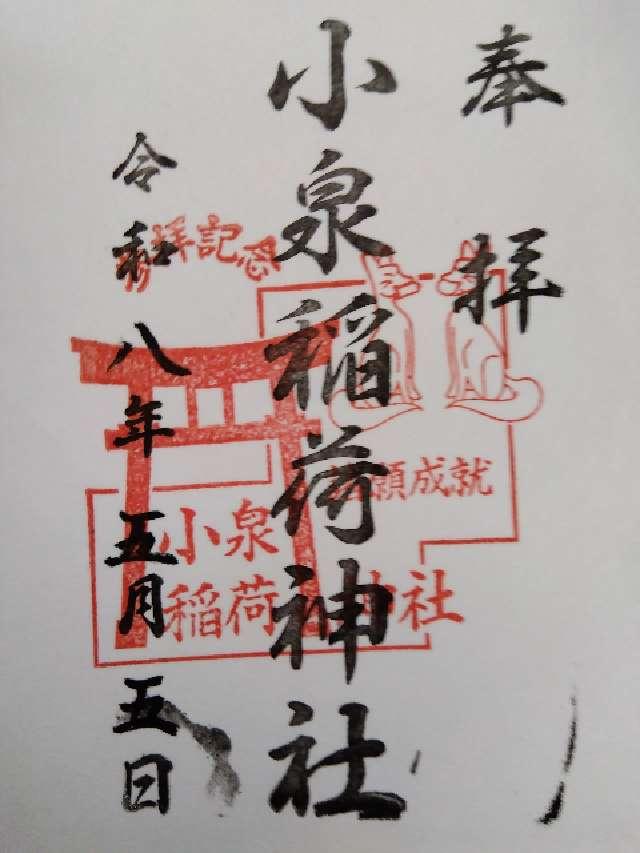 奉拝
小泉稲荷神社
令和八年五月五日
参拝記念
願成就
小泉
稲荷神社